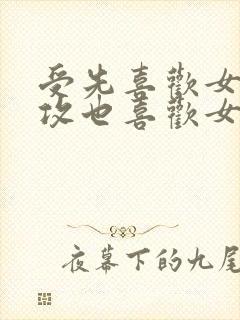 受先喜歡女
攻也喜歡女
夜幕下的九尾